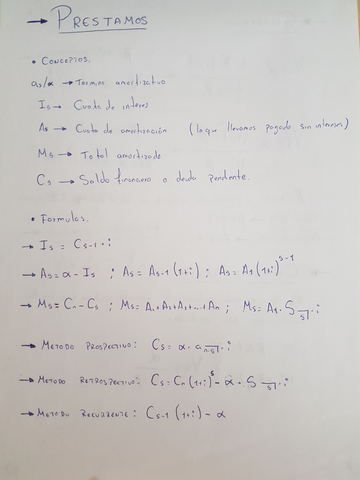 → PRESTAMOS
• CONCEPTOS:
as/α → Termino amortizativo
Is → Cuota de interes
As → Cuota de amortización (lo que llevamos pagado sin intereses)
Ms → Total amortizado
Cs → Saldo financiero o deuda pendiente.
• FORMULAS:
→ Is = Cs-1 · i
→ As = α - Is ; As = As-1 (1+i) ; As = A1 (1+i)^s-1
→ Ms = Cn - Cs ; Ms = A1 + A2 + A3 + ... + An ; Ms = A1 · S s| · i
→ METODO PROSPECTIVO: Cs = α · a n-s| · i
→ METODO RETROSPECTIVO: Cs = Cn (1+i)^s - α · S s| · i
→ METODO RECURRENTE: Cs-1 (1+i) - α